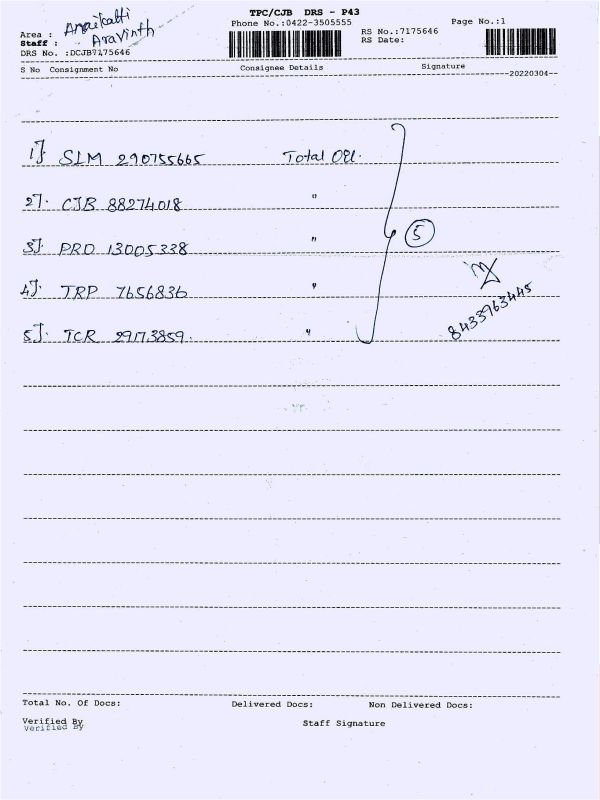 TPC/CJB DRS - P43
Phone No.:0422-3505555 Page No.:1
Area : Anaikatti
RS No.:7175646
Staff : Aravinth
RS Date:
DRS No. :DCJB7175646
S No Consignment No Consignee Details Signature
20220304
1]. SLM 290755665 Total Oil.
2]. CJB 88274018 "
3]. PRO 13005338 "
5
4]. TRP 7656836 "
8433963445
5]. TCR 29173859. "
Total No. Of Docs: Delivered Docs: Non Delivered Docs:
Verified By Staff Signature
Verified By